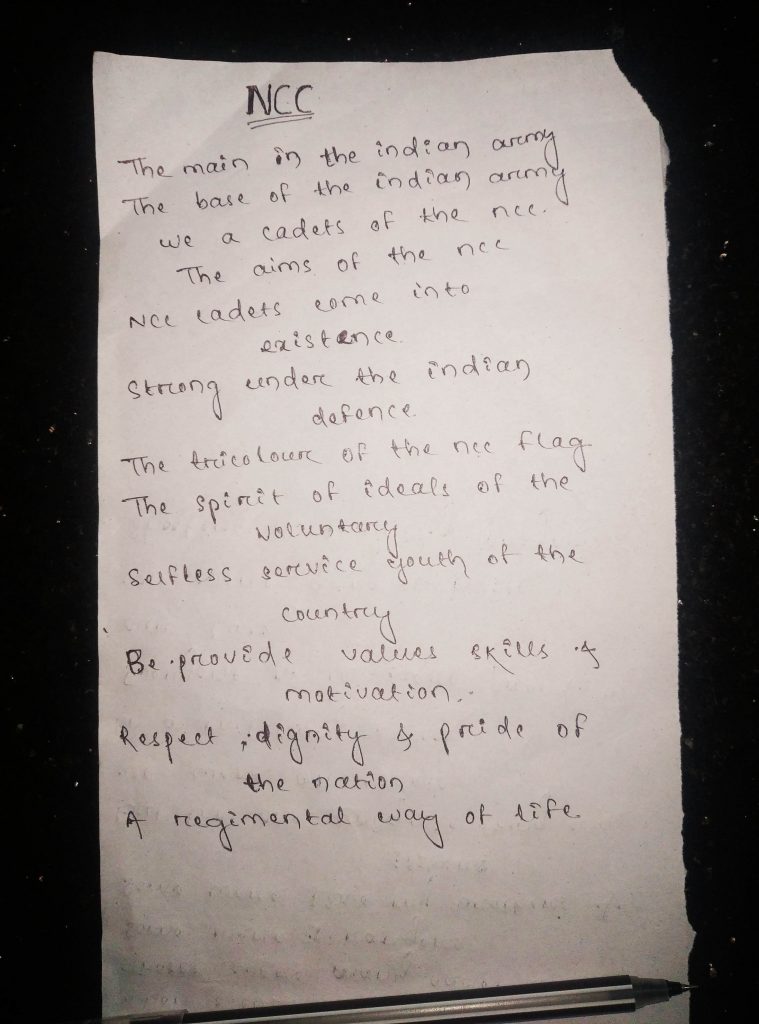 NCC
The main in the indian army
The base of the indian army
we a cadets of the ncc.
The aims of the ncc
NCC cadets come into
existence.
Strong under the indian
defence.
The tricolour of the ncc flag
The spirit of ideals of the
voluntary
Selfless service youth of the
country
Be provide values skills &
motivation.
Respect, dignity & pride of
the nation
A regimental way of life